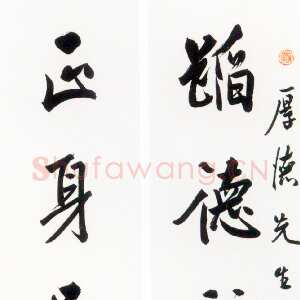 厚德先生
蹈德
正身
Shufawang.CN